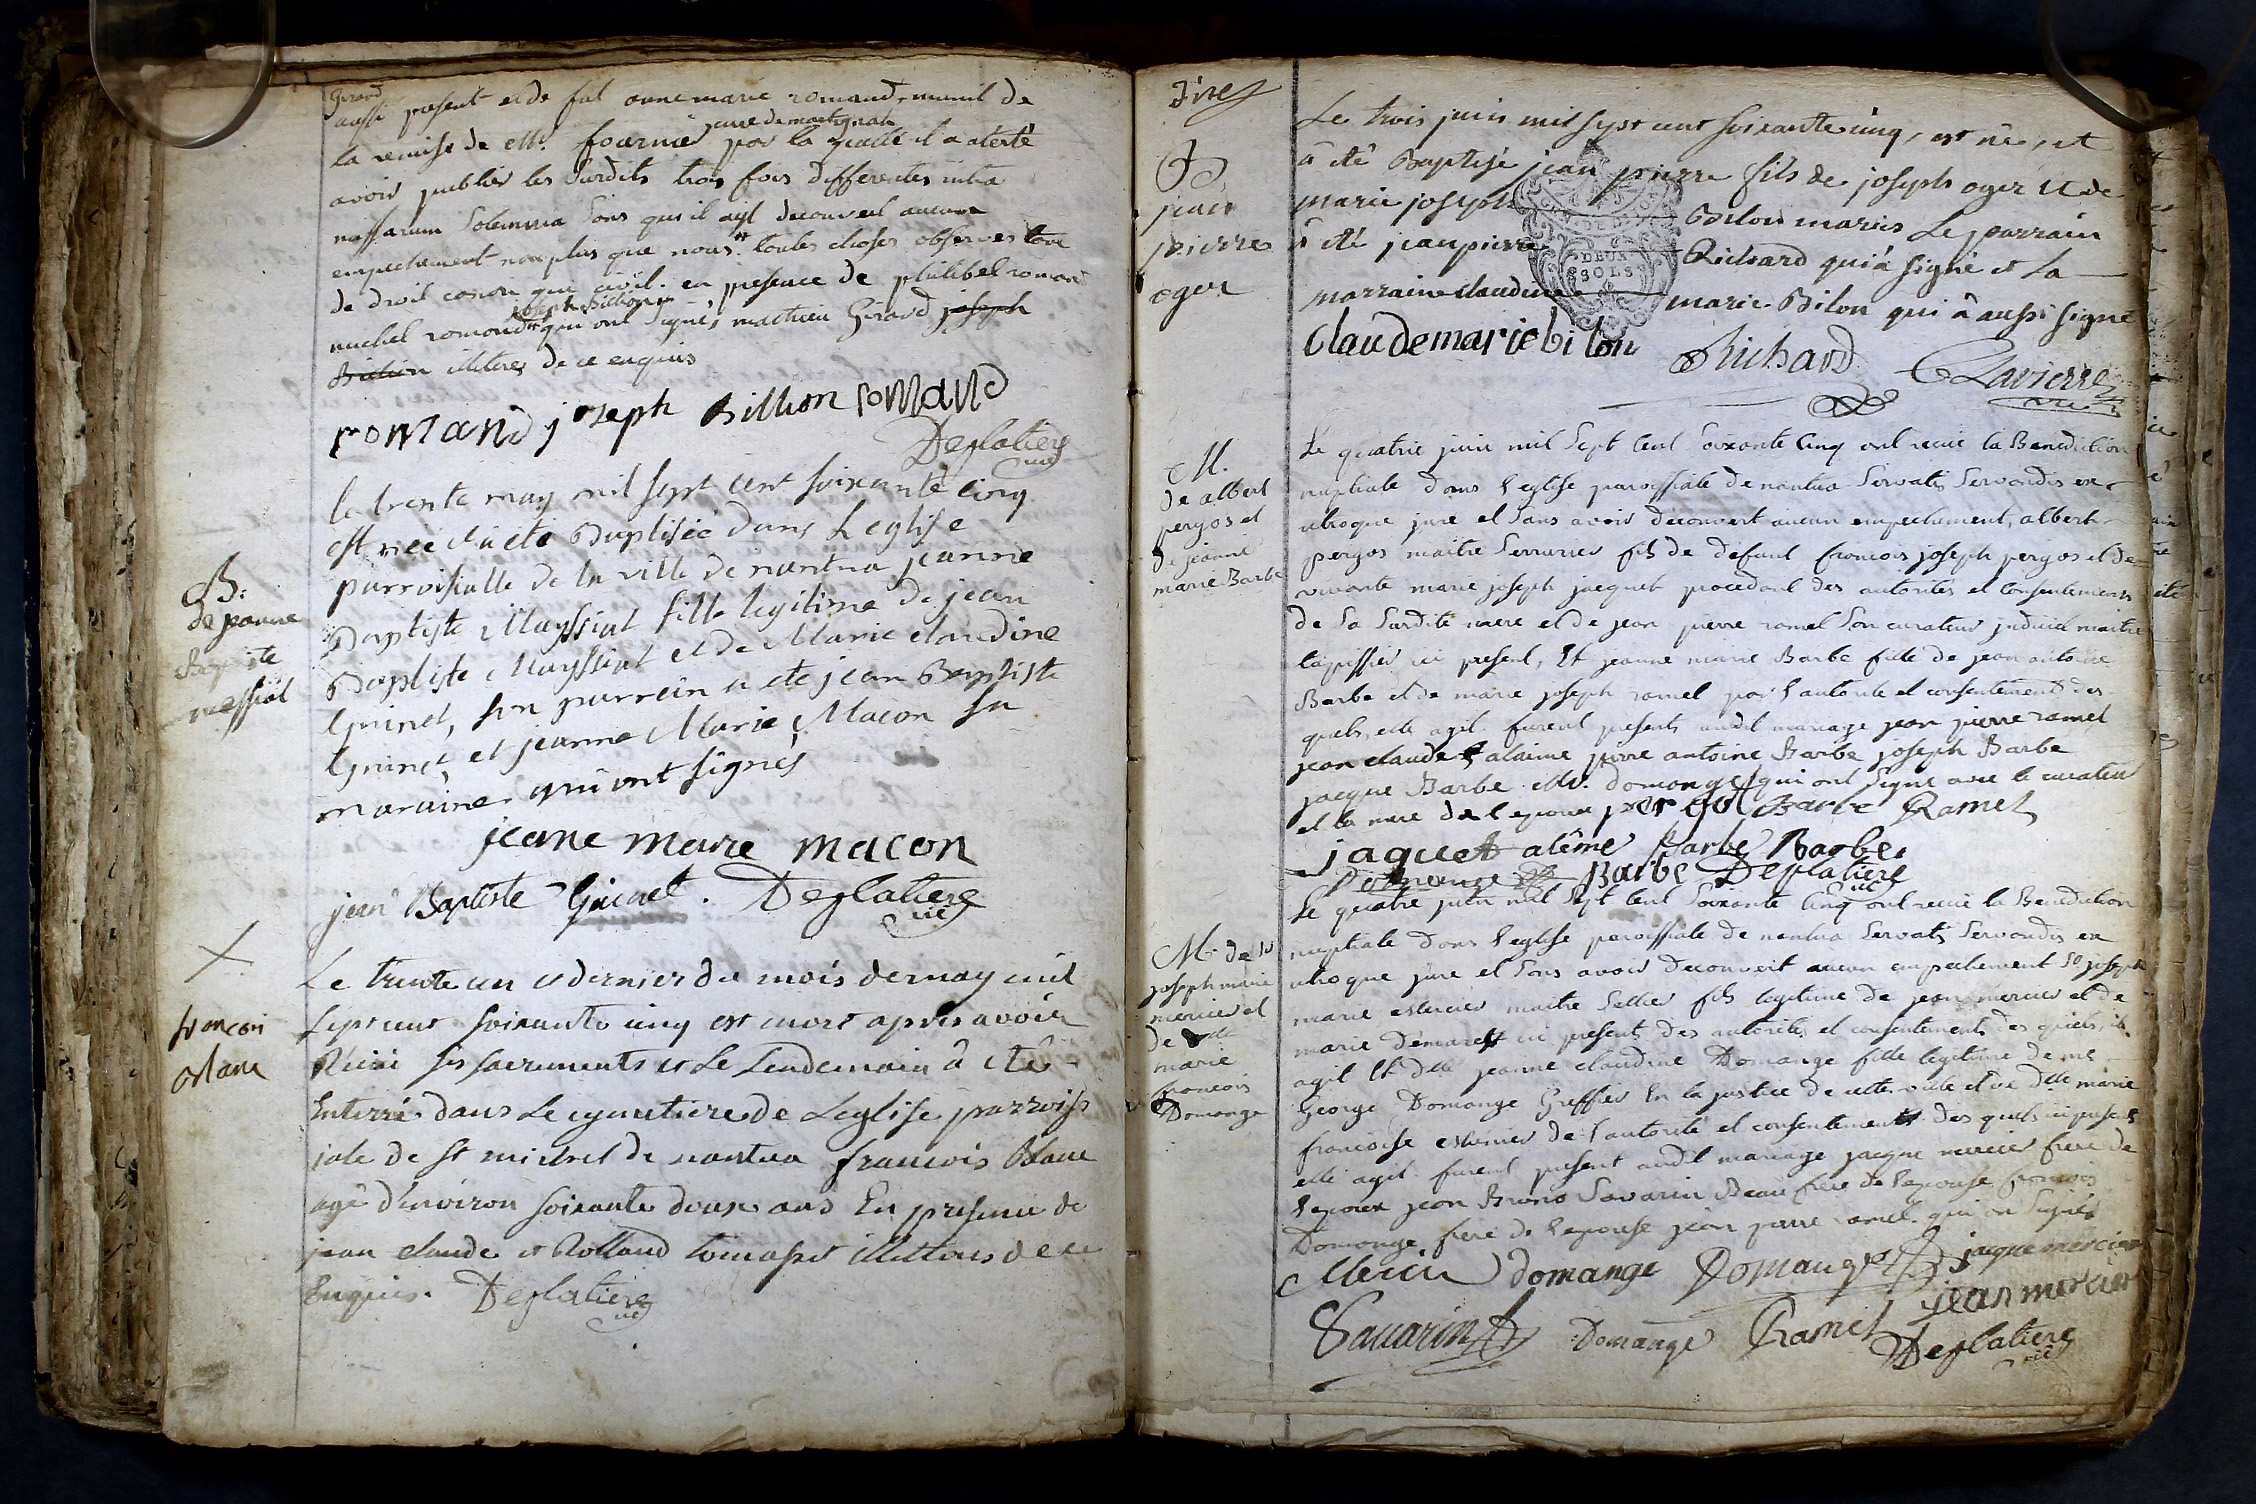 Girard
aussi present et de fut anne marie romand, munil de
la remise de Mr. fournié curé de martignat par la quelle il a atesté
avoir publier les Surdits trois fois differentes intra
missarum Solemnia Sans qu'il ayt decouvert aucun
empechement non plus que nous toutes choses observes tant
de droit canon que civil. en presence de philibel romand
michel romand joseph Billion qui ont Signés, mathieu Girard joseph
Billion illiteres de ce enquis
romand joseph Billion romand
Deplatiere vic
le trente may mil sept cent soixante cinq
est née et a été Baptisée dans L'eglise
parroissialle de la ville de nantua jeanne
Baptiste Mayssiat fille legitime de jean
Baptiste Mayssiat et de Marie claudine
Guinet, son parrein a ete jean Baptiste
Guinet et jeanne Marie Macon sa
maraine qui ont signés
B.
de jeanne
Baptiste
messiat
jeane marie macon
jean Baptiste Guinet. Deplatiere vic
Le trente un et dernier du mois de may mil
sept cent soixante cinq est mort apres avoir
Recû ses sacrements et Le Lendemain à eté
Enterré dans Le cymetiere de L'eglise parroiss
iale de st michel de nantua francois Blanc
agé d'environ soixante douze ans En presence de
jean claude et Rolland tomasset illitterés de ce
Enquis. Deplatiere vic
X
francois
Blanc
B
jean
pierre
oger
Le trois juin mil sept cent soixante cinq, est né, et
à été Baptisé jean pierre fils de joseph oger et de
marie joseph Bilon mariés Le parrain
à été jean pierre Richard qui à signé et La
marraine claudine marie Bilon qui à aussi signé
DEUX
SOLS
Claudemarie bilon Richard Clavierre
vic
M.
de albert
pergos et
de jeanne
marie Barbe
Le quatre juin mil Sept Cent Soixante Cinq ont recue la Benediction
nuptiale dans l'eglise paroissiale de nantua Servatis Servandis ex
utroque jure et Sans avoir decouvert aucun empechement, albert
pergos maitre Serrurier fils de defunt francois joseph pergos et de
vivante marie joseph jacquet procedant des autorités et Consentements
de Sa Surdite mere et de jean pierre ramel Son curateur judiciel maitre
tapissier ici present, Et jeanne marie Barbe fille de jean antoine
Barbe et de marie joseph ramel par l'autorite et consentement des
quels elle agit furent presents audit mariage jean pierre ramel
jean claude alaime pierre antoine Barbe joseph Barbe
jacque Barbe Mr. domonge qui ont Signe avec le curateur
et la mere de l'epoux pergos Barbe Ramel
jaquet alême Barbe Barbe
Domange Barbe Deplatiere vic
M. de sr
joseph marie
mercier et
de
marie
francois
Domange
Le quatre juin mil Sept Cent Soixante Cinq ont recue la Benediction
nuptiale dans l'eglise paroissiale de nantua Servatis Servandis ex
utroque jure et Sans avoir decouvert aucun empechement Sr joseph
marie Mercier maitre Sellier fils legitime de jean mercier et de
marie demarest ici present des autorités et consentements des quels, il
agit Et dlle jeanne claudine Domange fille legitime de me
George Domange Greffier En la justice de cette ville et de dlle marie
francoise de l'autorité et consentements des quels ici presents
elle agit furent present audit mariage jacque mercier frere de
l'epoux jean Bruno Savarin Beau frere de l'epouse francois
Domange frere de l'epouse jean pierre ramel qui on Signés
Mercier domange Domange jacque mercier
Savarin Domange Ramel jean mercier
Deplatiere vic